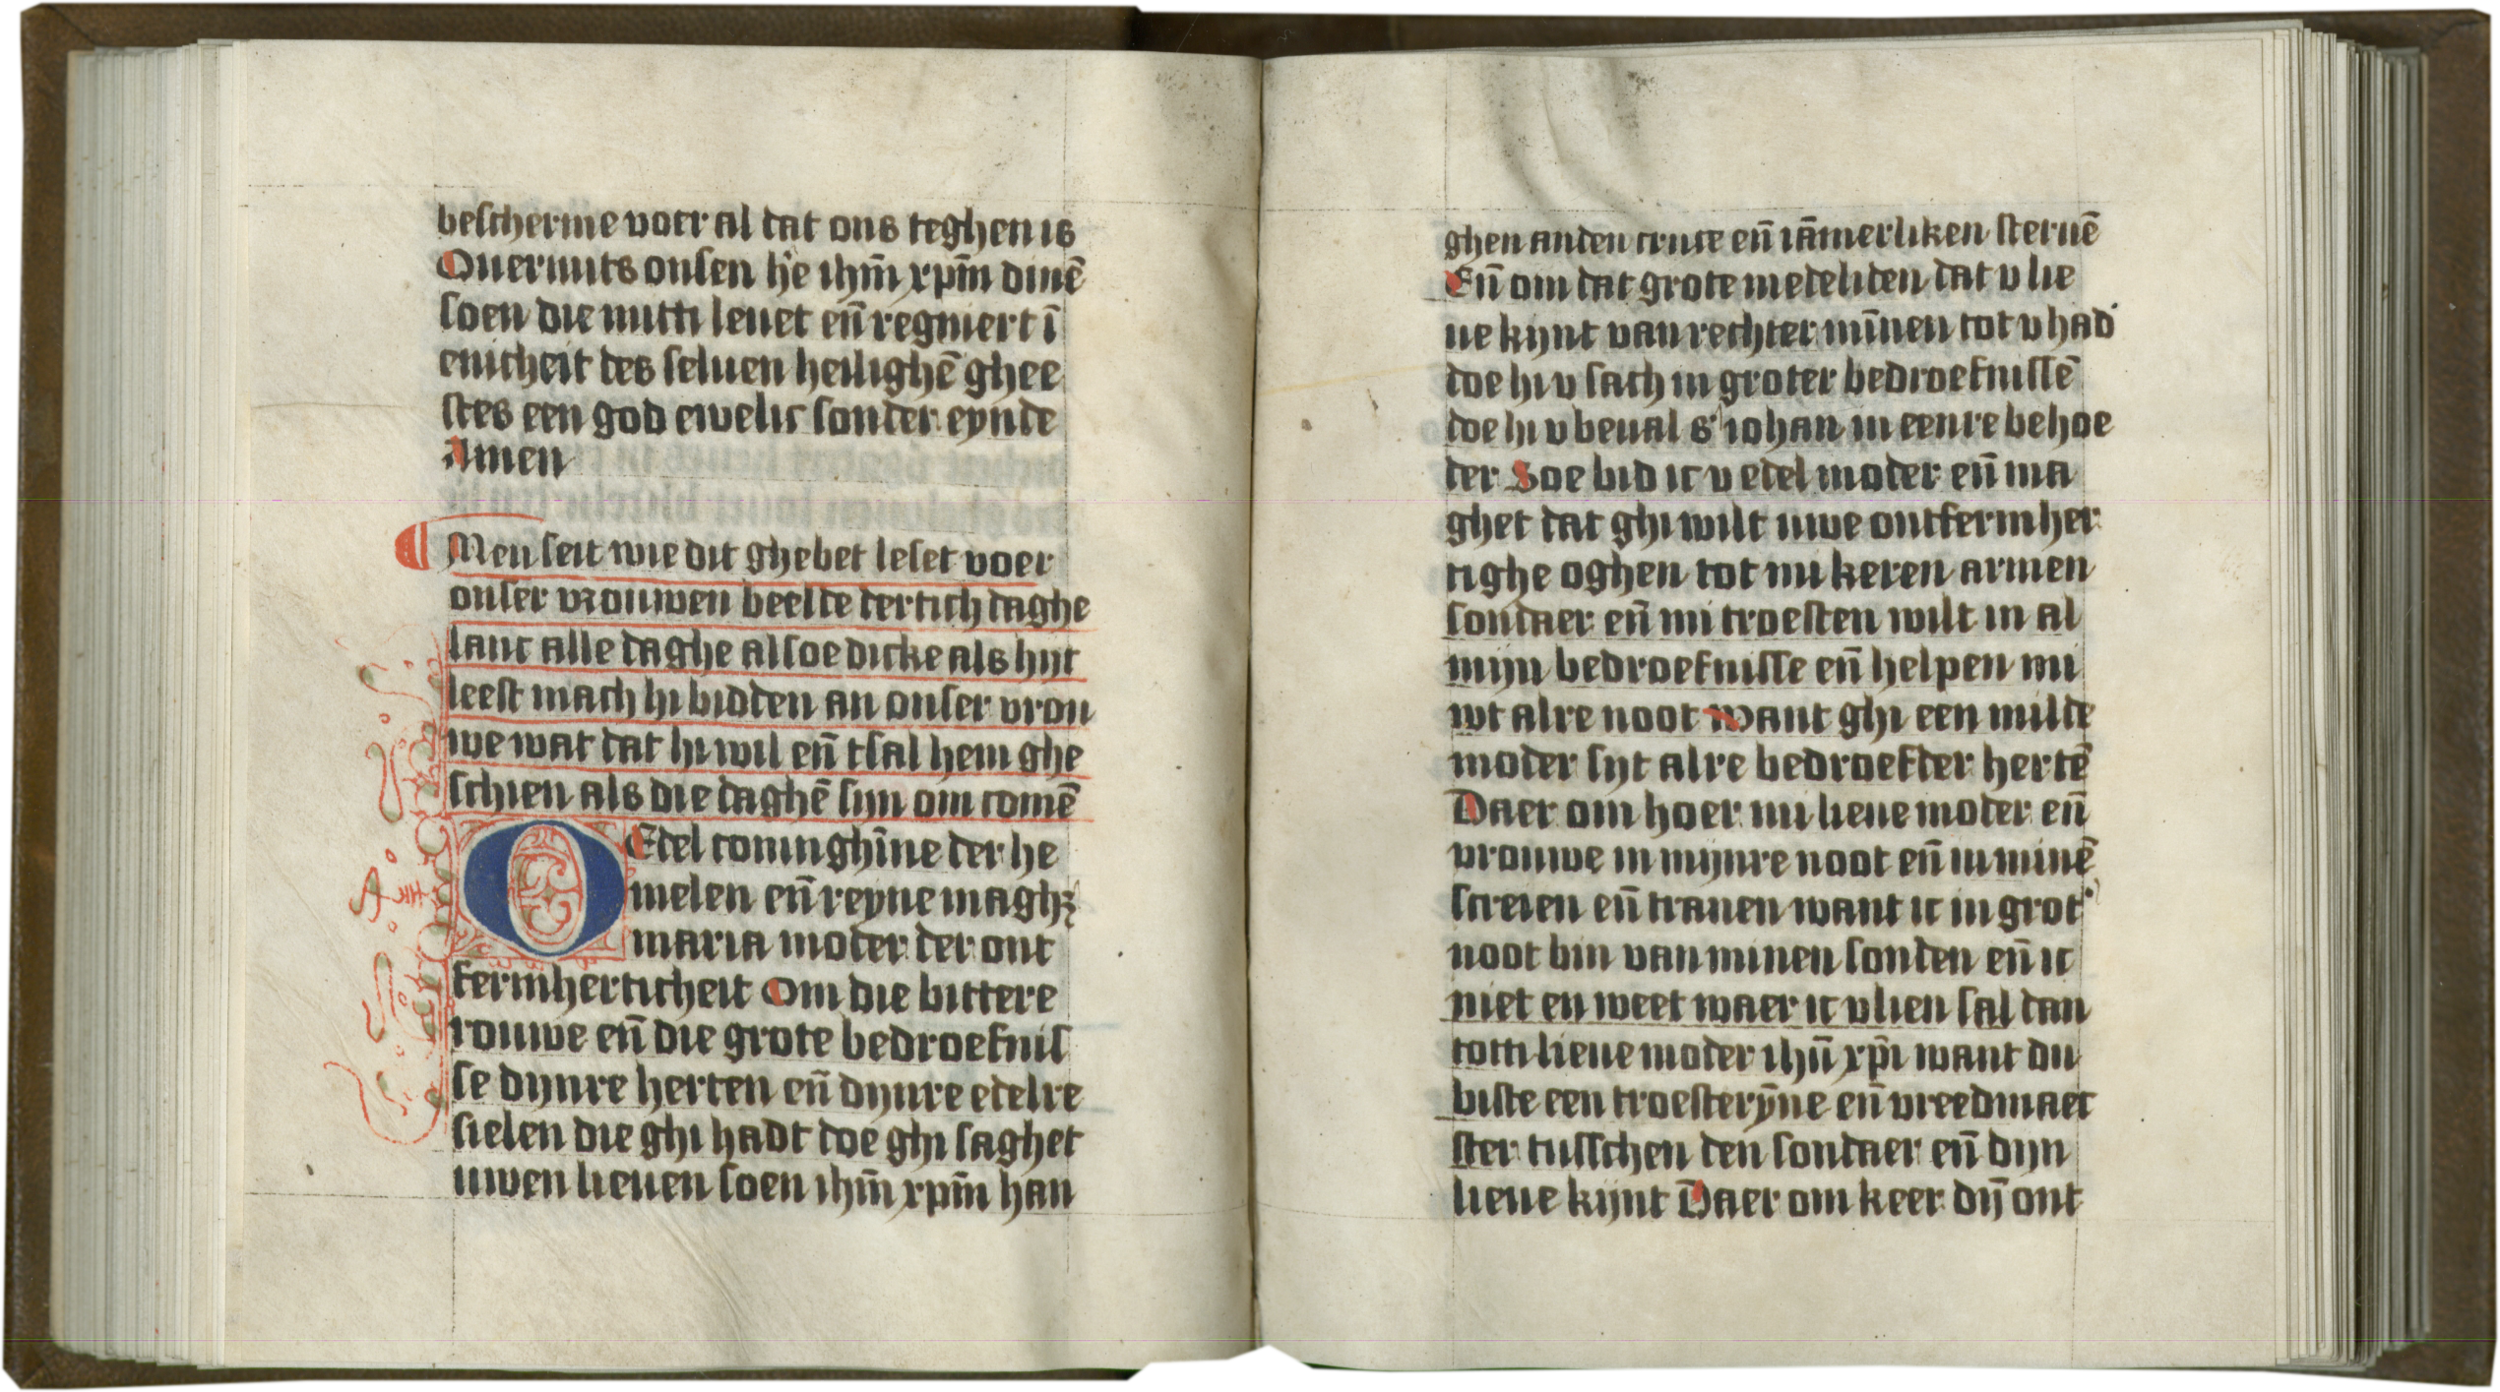 bescherme voer al dat ons teghen is
Ouermits onsen h'e ihm̄ xpm̄ dinē
soen die mitti leuet en̄ regniert ī
enicheit des seluen heilighē ghee
stes een god ewelic sonder eynde
Amen
Men seit wie dit ghebet leset voer
onser vrouwen beelde dertich daghe
lanc alle daghe alsoe dicke als hijt
leest mach hi bidden an onser vrou
we wat dat hi wil en̄ tsal hem ghe
schien als die daghē sijn om comē
O Edel coninghīne der he
melen en̄ reyne maghꝫ
maria moder der ont
fermherticheit Om die bittere
rouwe en̄ die grote bedroefnis
se dijnre herten en̄ dijnre edelre
sielen die ghi hadt doe ghi saghet
uwen lieuen soen ihm̄ xpm̄ han
ghen anden cruce en̄ iām̄erliken steruē
En̄ om dat grote medeliden dat v lie
ue kijnt van rechter mīnen tot v had
doe hi v sach in groter bedroefnissē
doe hi v beual s' iohan in eenre behoe
der Soe bid ic v edel moder en̄ ma
ghet dat ghi wilt uwe ontfermher
tighe oghen tot mi keren armen
sondaer en̄ mi troesten wilt in al
mijn bedroefnisse en̄ helpen mi
wt alre noot want ghi een milde
moder sijt alre bedroefder hertē
Daer om hoer mi lieue moder en̄
vrouwe in mijnre noot en̄ in minē
screien en̄ tranen want ic in grot'
noot bin van minen sonden en̄ ic
niet en weet waer ic vlien sal dan
totti lieue moder ihū xp̄i want du
biste een troesterȳne en̄ vreedmaec
ster tusschen den sondaer en̄ dijn
lieue kijnt Daer om keer dij̄ ont